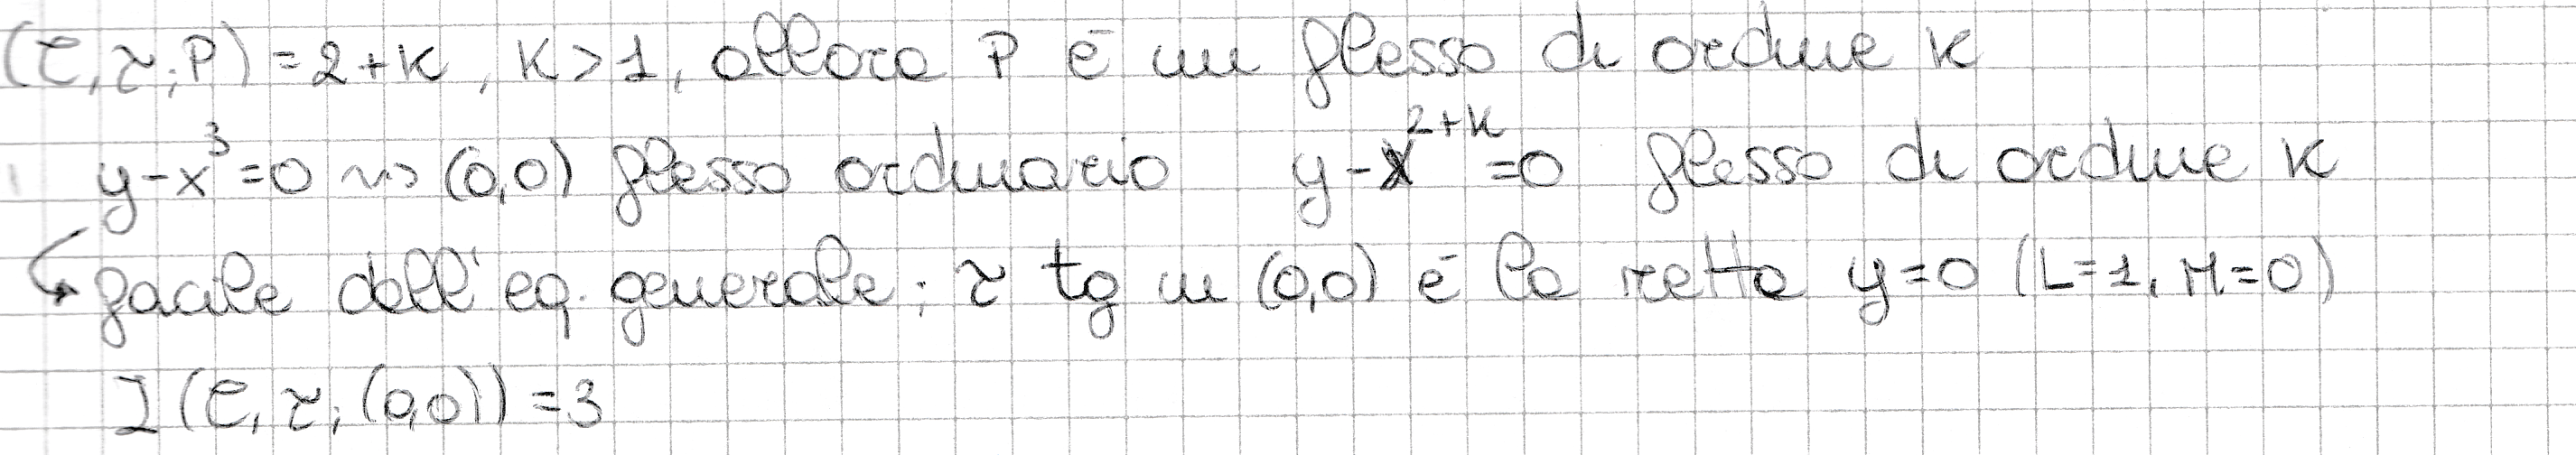 (C, τ; P) = 2+K, K>1, allora P é un flesso di ordine K
y-x³=0 ⇝ (0,0) flesso ordinario y-x²⁺ᴷ=0 flesso di ordine K
facile dall'eq. generale; τ tg in (0,0) é la retta y=0 (L=1, M=0)
I(C, τ; (0,0))=3